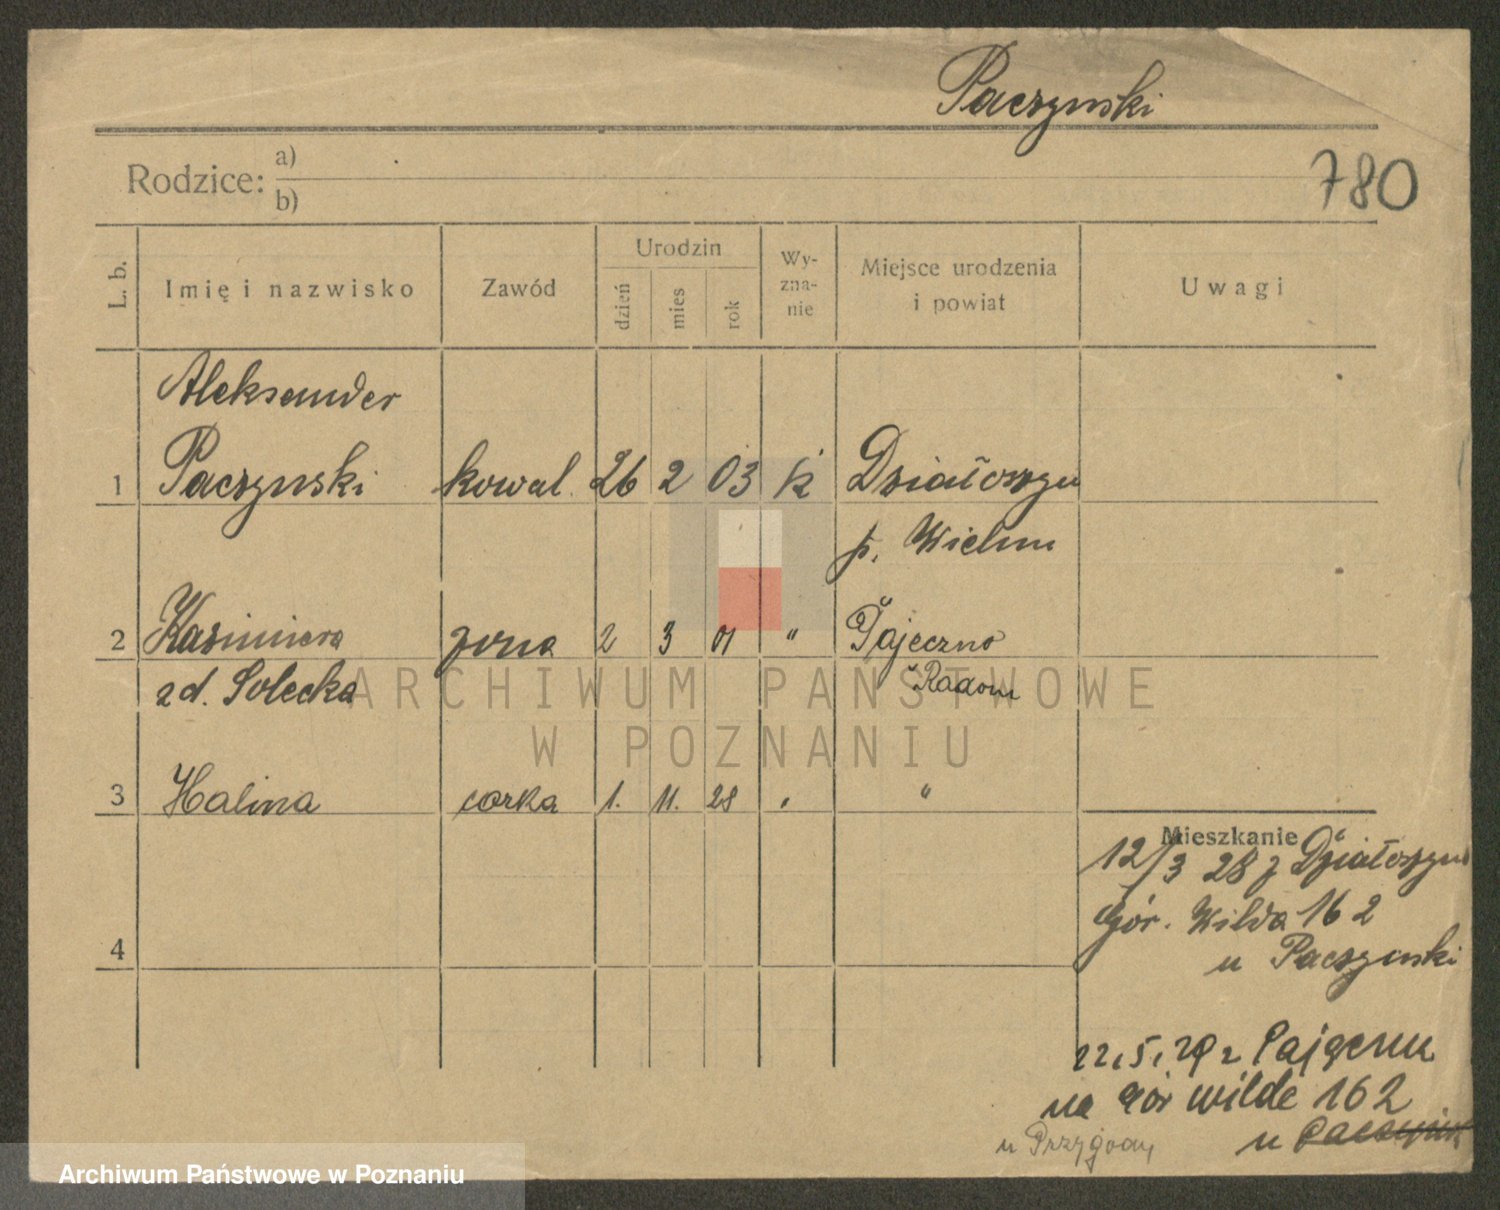 Paczynski
780
Rodzice: a)
b)
L. b.
Imię i nazwisko
Zawód
Urodzin
dzień
mies
rok
Wy-
zna-
nie
Miejsce urodzenia
i powiat
Uwagi
Aleksander
1 Paczynski kowal 26 2 03 k Działoszyn
p. Wielun
2 Kasimiera żona 2 3 01 " Pajeczno
zd. Solecka Radom
3 Halina corka 1. 11. 28 " "
Mieszkanie
12/3 28 z Działoszyn
Gór. Wilda 162
u Paczynski
4
22.5.29 z
na Gór wilde 162
u
u Przygody
ARCHIWUM PAŃSTWOWE
W POZNANIU
Archiwum Państwowe w Poznaniu